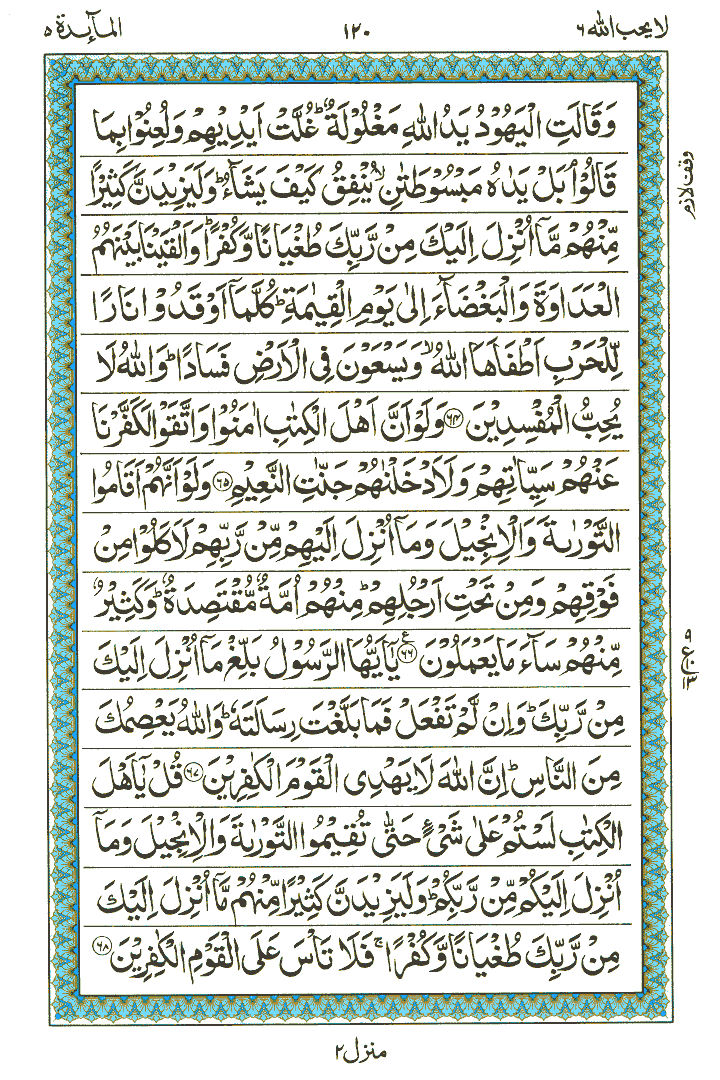 لا یحب الله ۶ ۱۲۰ المآئدة ۵
وَقَالَتِ الْيَهُوْدُ يَدُ اللّٰهِ مَغْلُوْلَةٌ ؕ غُلَّتْ اَيْدِيْهِمْ وَلُعِنُوْا بِمَا
قَالُوْا ۘ بَلْ يَدٰهُ مَبْسُوْطَتٰنِ ۙ يُنْفِقُ كَيْفَ يَشَآءُ ؕ وَلَيَزِيْدَنَّ كَثِيْرًا
وقف لازم
مِّنْهُمْ مَّاۤ اُنْزِلَ اِلَيْكَ مِنْ رَّبِّكَ طُغْيَانًا وَّكُفْرًا ؕ وَاَلْقَيْنَا بَيْنَهُمُ
الْعَدَاوَةَ وَالْبَغْضَآءَ اِلٰى يَوْمِ الْقِيٰمَةِ ؕ كُلَّمَاۤ اَوْقَدُوْا نَارًا
لِّلْحَرْبِ اَطْفَاَهَا اللّٰهُ ۙ وَيَسْعَوْنَ فِى الْاَرْضِ فَسَادًا ؕ وَاللّٰهُ لَا
يُحِبُّ الْمُفْسِدِيْنَ ۶۴ وَلَوْ اَنَّ اَهْلَ الْكِتٰبِ اٰمَنُوْا وَاتَّقَوْا لَكَفَّرْنَا
عَنْهُمْ سَيِّاٰتِهِمْ وَلَاَدْخَلْنٰهُمْ جَنّٰتِ النَّعِيْمِ ۶۵ وَلَوْ اَنَّهُمْ اَقَامُوا
التَّوْرٰىةَ وَالْاِنْجِيْلَ وَمَاۤ اُنْزِلَ اِلَيْهِمْ مِّنْ رَّبِّهِمْ لَاَكَلُوْا مِنْ
فَوْقِهِمْ وَمِنْ تَحْتِ اَرْجُلِهِمْ ؕ مِنْهُمْ اُمَّةٌ مُّقْتَصِدَةٌ ؕ وَكَثِيْرٌ
مِّنْهُمْ سَآءَ مَا يَعْمَلُوْنَ ۶۶ يٰۤاَيُّهَا الرَّسُوْلُ بَلِّغْ مَاۤ اُنْزِلَ اِلَيْكَ
مِنْ رَّبِّكَ ؕ وَاِنْ لَّمْ تَفْعَلْ فَمَا بَلَّغْتَ رِسَالَتَهٗ ؕ وَاللّٰهُ يَعْصِمُكَ
مِنَ النَّاسِ ؕ اِنَّ اللّٰهَ لَا يَهْدِى الْقَوْمَ الْكٰفِرِيْنَ ۶۷ قُلْ يٰۤاَهْلَ
الْكِتٰبِ لَسْتُمْ عَلٰى شَىْءٍ حَتّٰى تُقِيْمُوا التَّوْرٰىةَ وَالْاِنْجِيْلَ وَمَاۤ
اُنْزِلَ اِلَيْكُمْ مِّنْ رَّبِّكُمْ ؕ وَلَيَزِيْدَنَّ كَثِيْرًا مِّنْهُمْ مَّاۤ اُنْزِلَ اِلَيْكَ
مِنْ رَّبِّكَ طُغْيَانًا وَّكُفْرًا ۚ فَلَا تَاْسَ عَلَى الْقَوْمِ الْكٰفِرِيْنَ ۶۸
منزل ۲